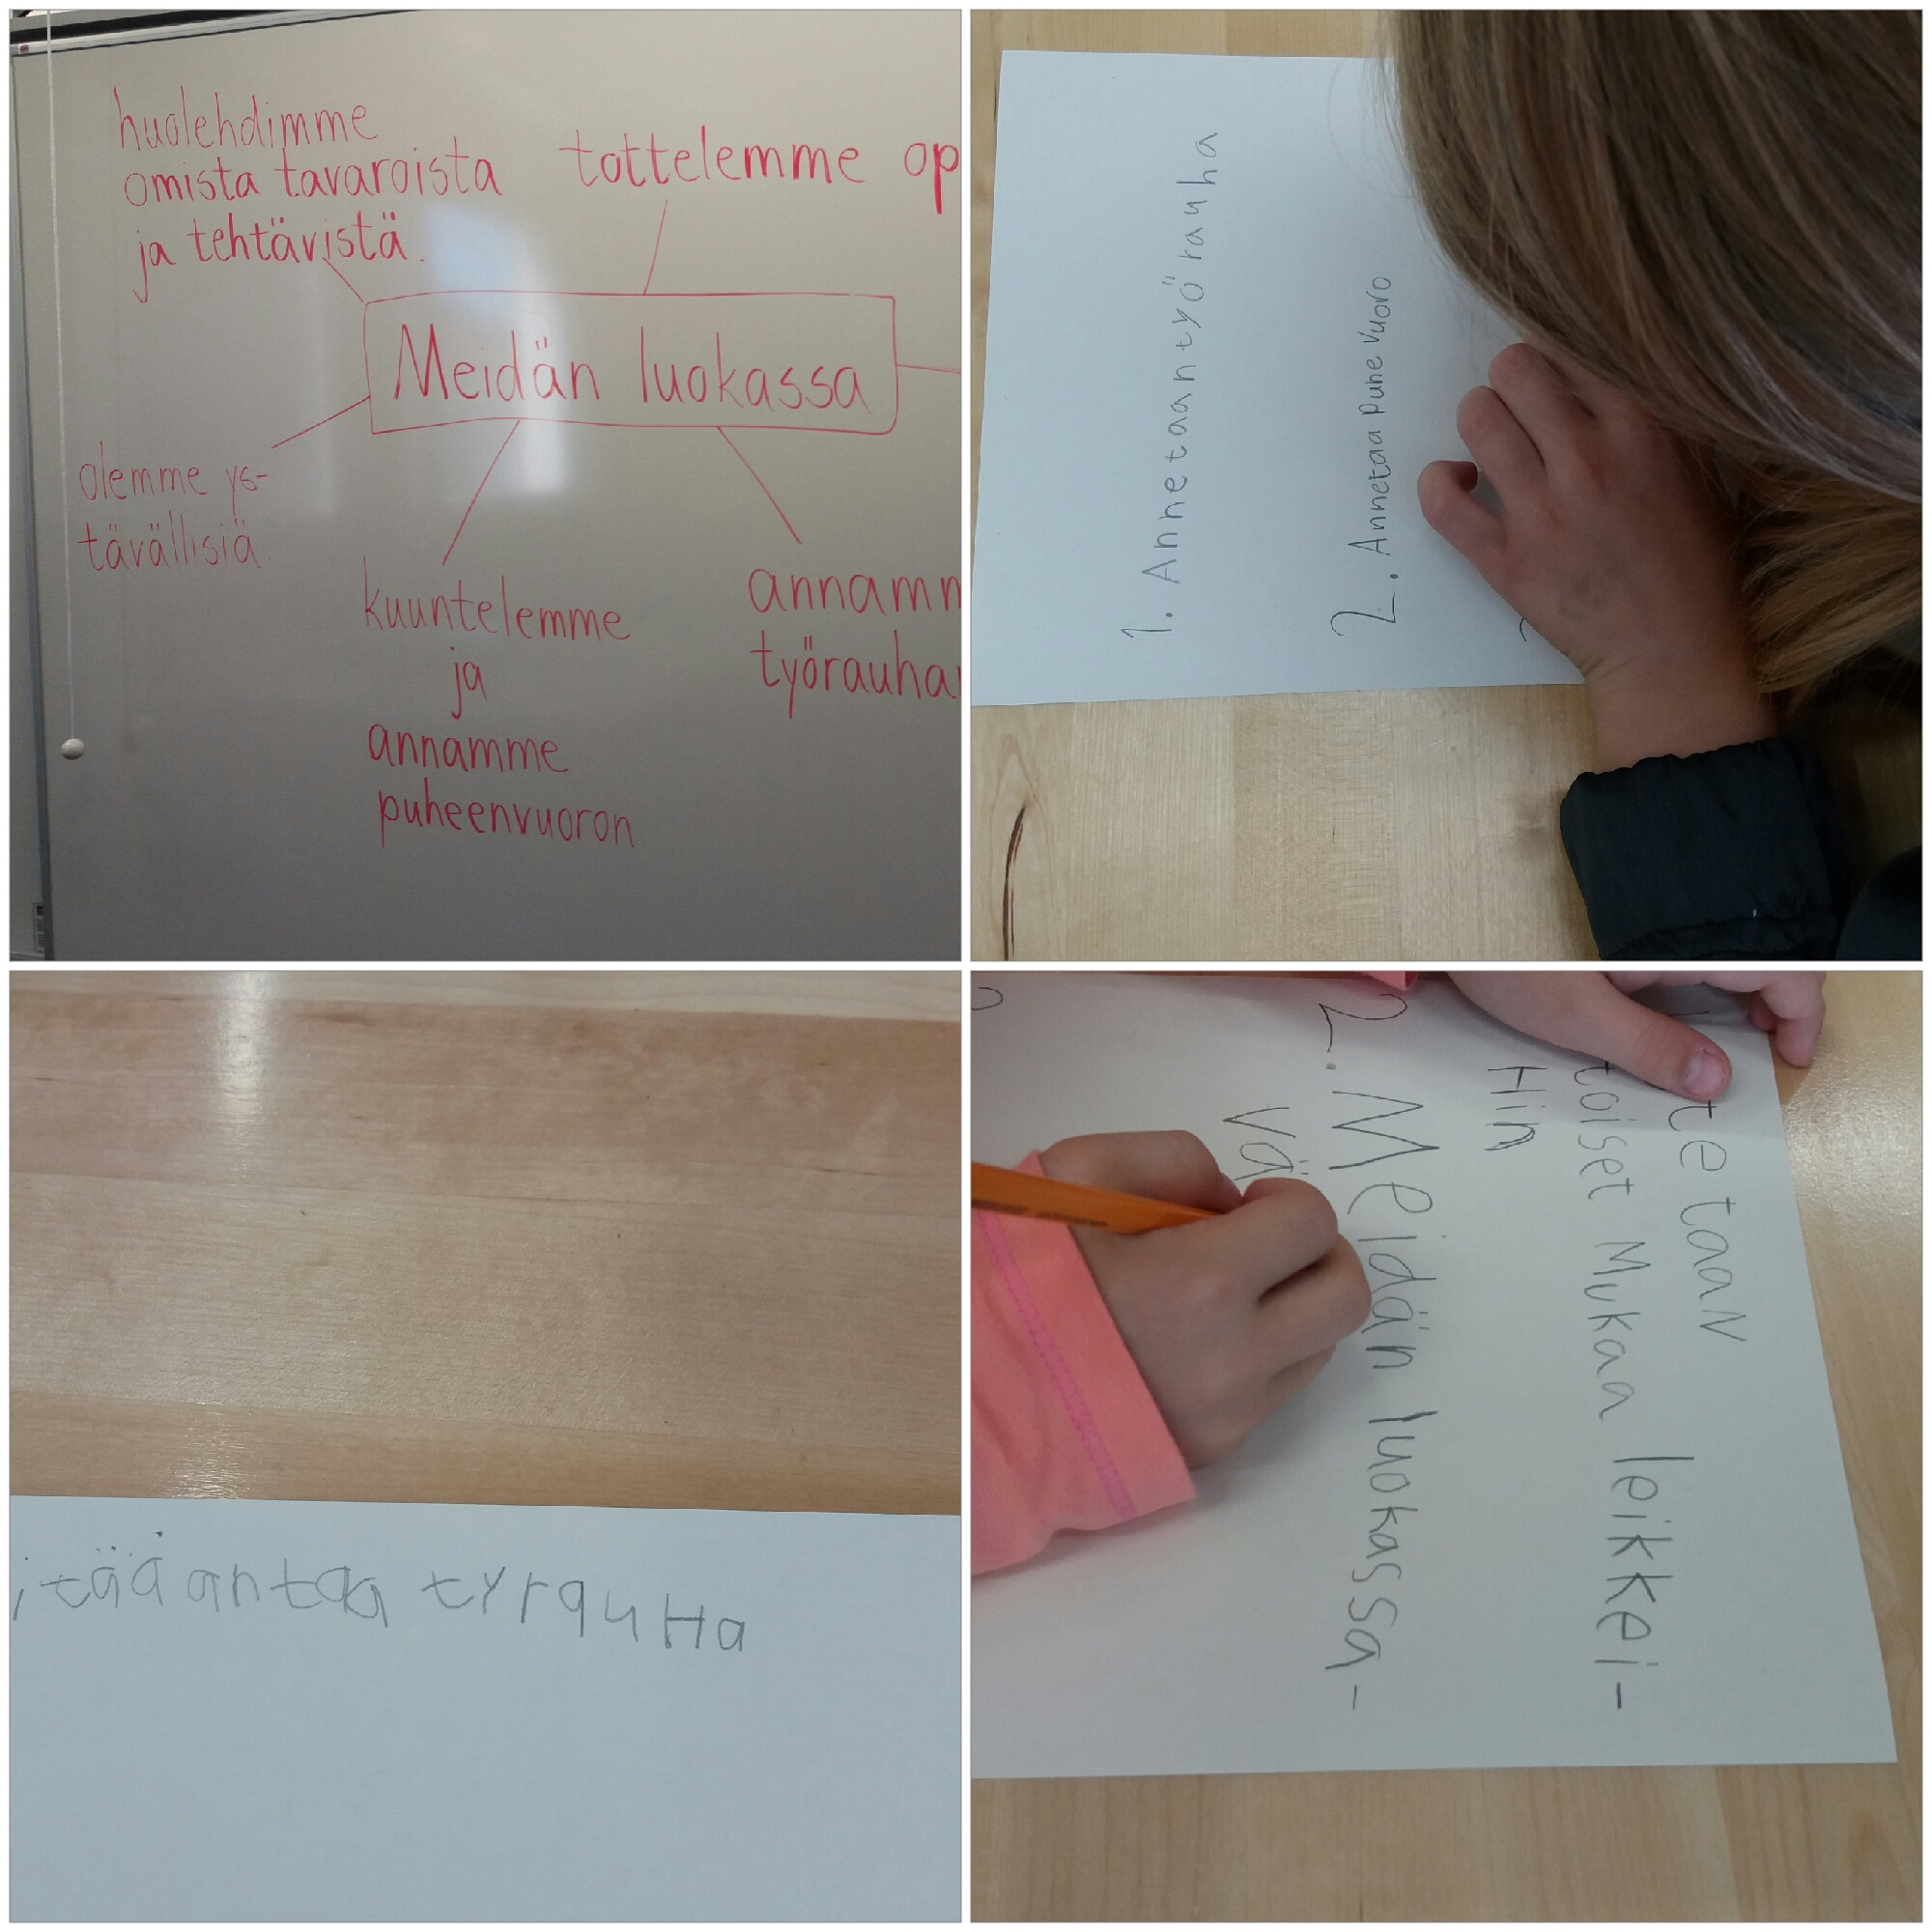 huolehdimme
omista tavaroista
ja tehtävistä.
tottelemme op
Meidän luokassa
olemme ys-
tävällisiä.
kuuntelemme
ja
annamme
puheenvuoron
annamm
työrauha
1. Annetaan työrauha
2. Annetaa puhe vuoro
itää antaa tyrauHa
tetaaN
toiset Mukaa leikkei-
Hin
2. Meidän luokassa-
vä